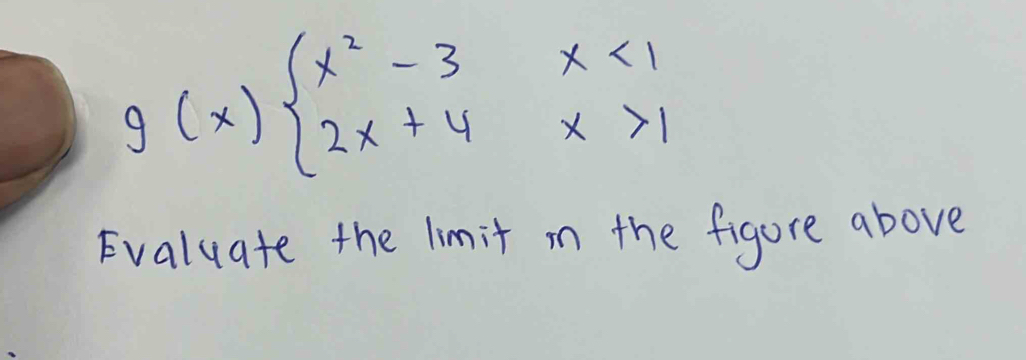 g(x) { x² - 3 x < 1
2x + 4 x > 1
Evaluate the limit in the figure above